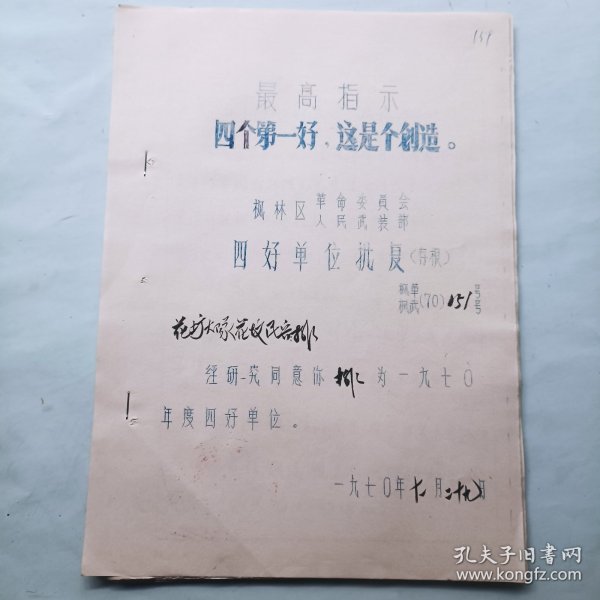 159
最高指示
四个第一好,这是个创造。
枫林区革命委员会
人民武装部
四好单位批复(存根)
枫革
枫武(70)151号
大队花坟民兵排
经研究同意你排为一九七〇
年度四好单位。
一九七〇年十二月二十九日
孔夫子旧书网
www.kongfz.com